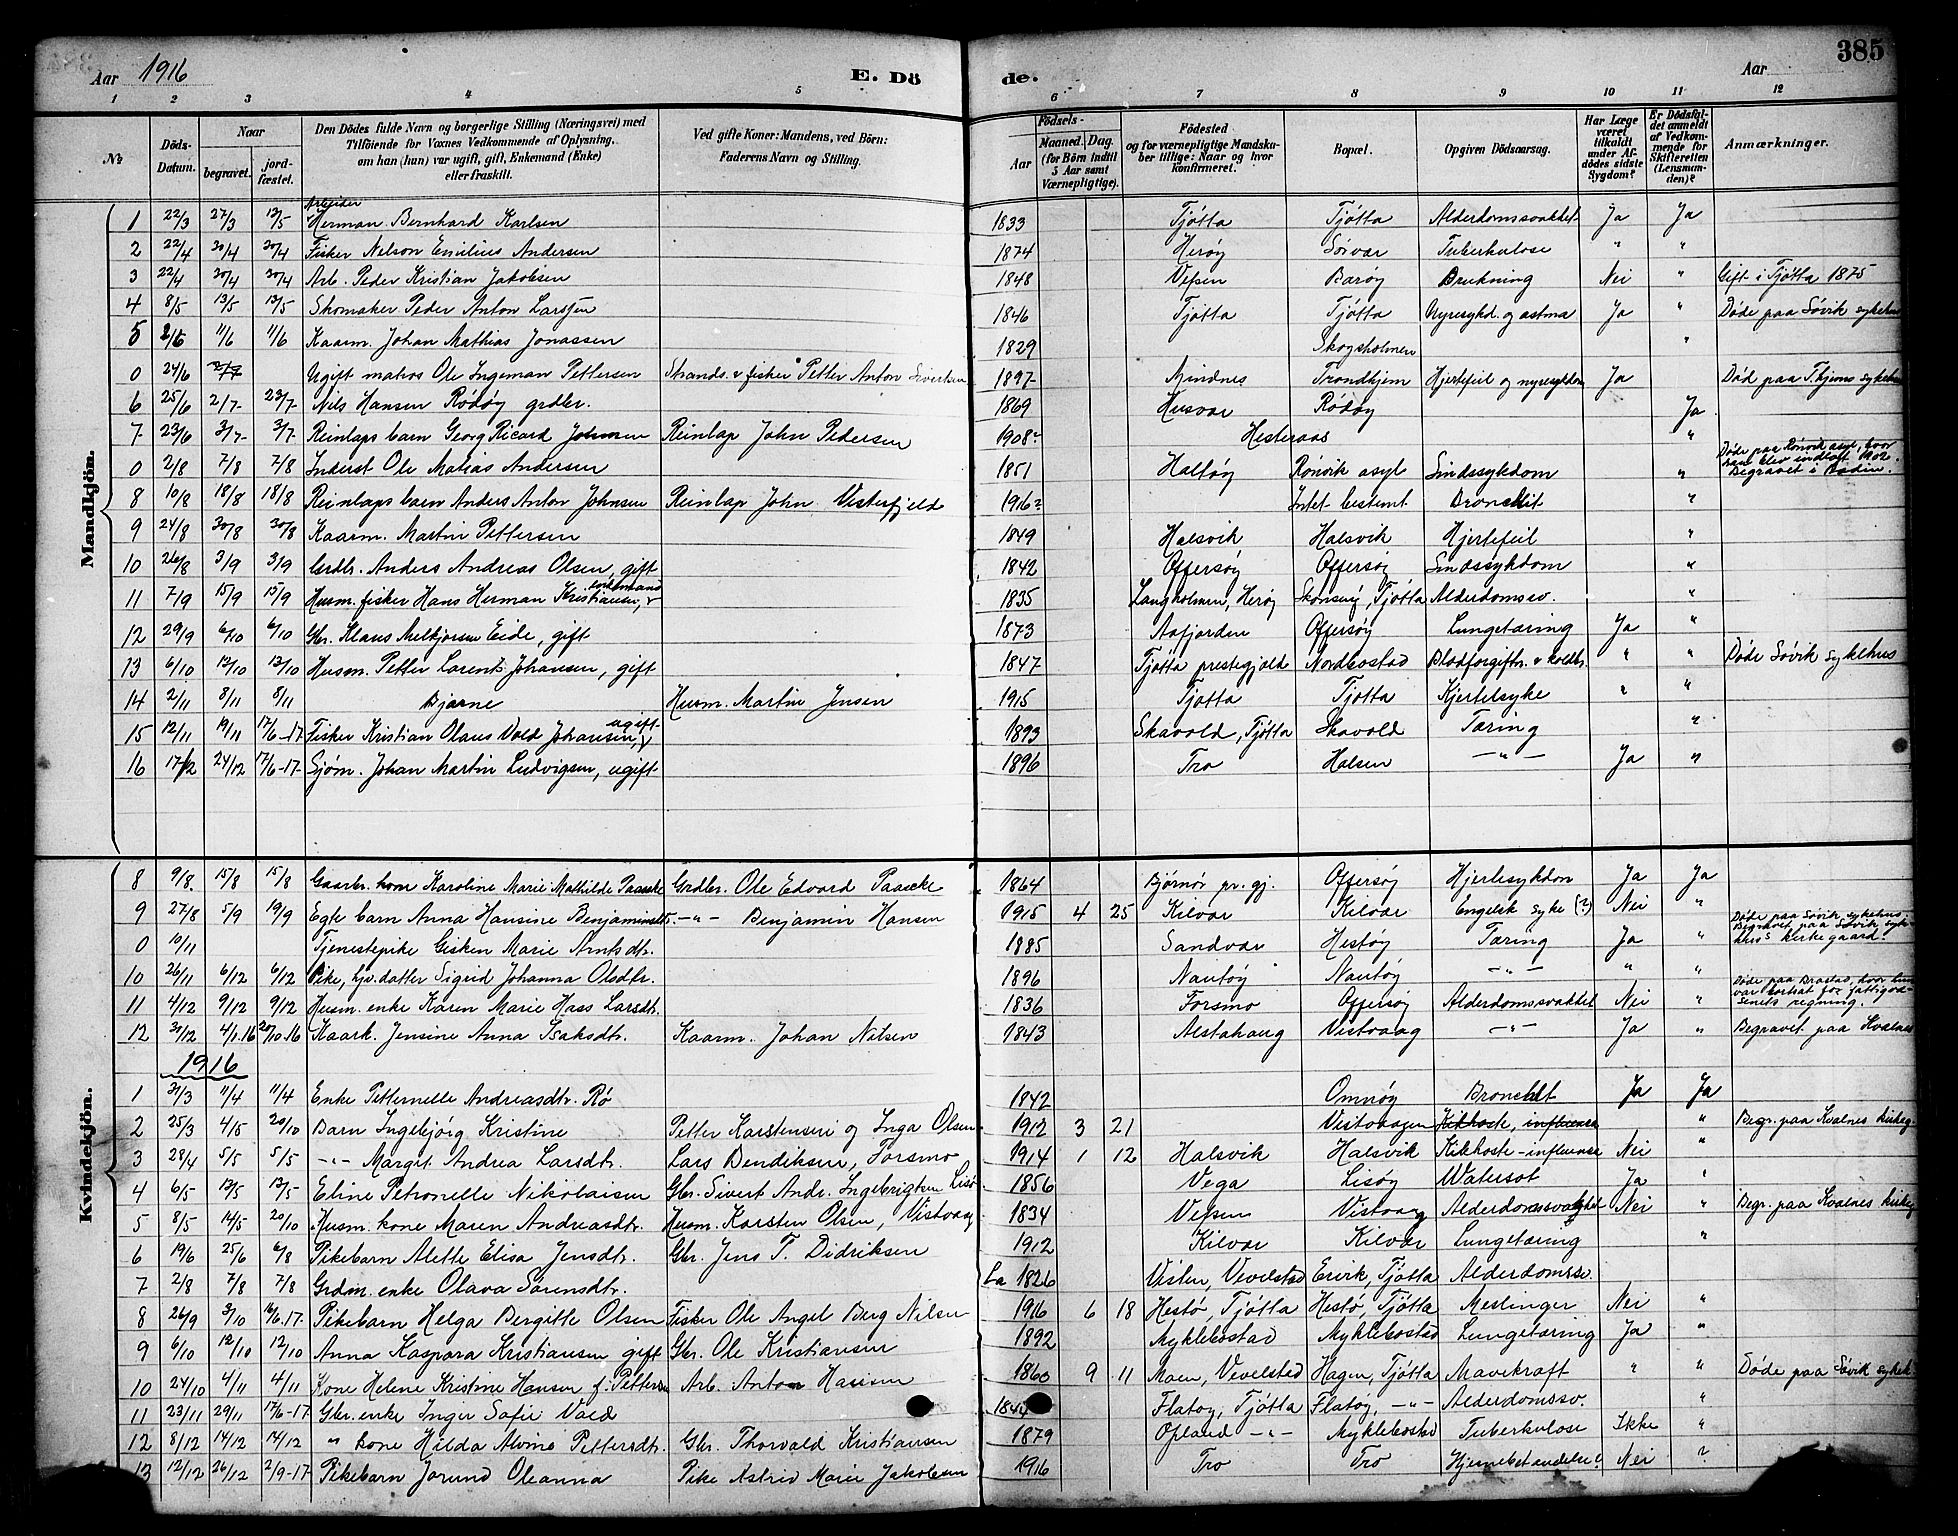 385
Aar 1916 E. Dö
de. Aar
1 2 3 4 5 6 7 8 9 10 11 12
№ Döds-Datum. Naar begravet. jordfæstet. Den Dödes fulde Navn og borgerlige Stilling (Næringsvei) med Tilföiende for Voxnes Vedkommende af Oplysning, om han (hun) var ugift, gift, Enkemand (Enke) eller fraskilt. Ved gifte Koner: Mandens, ved Börn: Faderens Navn og Stilling. Födsels- Aar Maaned. Dag. (for Börn indtil 5 Aar samt Værnepligtige). Födested og for værnepligtige Mandskaber tillige: Naar og hvor konfirmeret. Bopæl. Opgiven Dödsaarsag. Har Læge været tilkaldt under Afdödes sidste Sygdom? Er Dödsfaldet anmeldt af Vedkommende for Skifteretten (Lensmanden)? Anmærkninger.
Mandkjön.
1 22/3 27/3 13/5 Arbeider Herman Bernhard Karlsen 1833 Tjøtta Tjøtta Alderdomssvakhet Ja Ja
2 22/4 30/4 30/4 Fisker Nelson Emilius Andersen 1874 Herøy Sørvær Tuberkulose " "
3 22/4 30/4 30/4 Arb. Peder Kristian Jakobsen 1848 Vefsen Barøy Drukning Nei " Gift i Tjøtta 1875
4 8/5 13/5 13/5 Skomaker Peder Anton Larssen 1846 Tjøtta Tjøtta Nyresykd. og astma Ja " Døde paa Søvik sykehus
5 2/6 11/6 11/6 Kaarm. Johan Mathias Jonassen 1829 Skogsholmen "
0 24/6 Ugift matros Ole Ingeman Pettersen Strands. & fisker Petter Anton Sivertsen 1897 Mindnes Trondhjem Hjertefeil og nyresykdom Ja Død paa Thjems sykehus
6 25/6 2/7 23/7 Nils Hansen Rødøy grdbr. 1869 Husvær Rødøy Ja
7 23/6 3/7 3/7 Reinlaps barn Georg Ricard Johnsen Reinlap John Pedersen 1908 Hesteraas "
0 2/8 7/8 7/8 Inderst Ole Matias Andersen 1851 Haltøy Rønvik asyl Sindssykdom " Døde paa Rønvik asyl, hvor han blev indlagt 1902. Begravet i Bodin.
8 10/8 18/8 18/8 Reinlaps barn Anders Anton Johnsen Reinlap John Visterfjeld 1916 Intet bestemt Bronchit "
9 24/8 30/8 30/8 Kaarm. Martin Pettersen 1849 Halsvik Halsvik Hjertefeil "
10 26/8 3/9 3/9 Grdbr. Anders Andreas Olsen, gift 1842 Offersøy Offersøy Sindssykdom "
11 7/9 15/9 15/9 Husm. fisker Hans Herman Kristiansen, enkemand 1835 Langholmen, Herøy Skonseng, Tjøtta Alderdomssv. "
12 29/9 6/10 6/10 Gbr. Klaus Melkjorsen Eide, gift 1873 Aafjorden Offersøy Lungetæring Ja "
13 6/10 13/10 13/10 Husm. Petter Lorents Johansen, gift 1847 Tjøtta prestegjeld Nordbostad Blodforgiftn. & koldbr. " " Døde Søvik sykehus
14 2/11 8/11 8/11 Bjarne Husm. Martin Jensen 1915 Tjøtta Tjøtta Kjertelsyke " "
15 12/11 19/11 17/6-17 Fisker Kristian Olaus Vold Johansen, ugift 1893 Skavold, Tjøtta Skavold Tæring "
16 17/12 24/12 17/6-17. Sjøm. Johan Martin Ludvigsen, ugift 1896 Tro Halsen -"- Ja "
Kvindekjön.
8 9/8 15/8 15/8 Gaarbr. kone Karoline Marie Mathilde Paaske Grdbr. Ole Edvard Paaske 1864 Bjørnør pr. gj. Offersøy Hjertesykdom Ja Ja
9 27/8 5/9 19/9 Egte barn Anna Hansine Benjaminsdtr. -"- Benjamin Hansen 1915 4 25 Kilvær Kilvær Engelsk syke (?) Nei "
0 10/11 Tjenestepike Gisken Marie Arntsdtr. 1885 Sandvær Hestøy Tæring Ja " Døde paa Søvik sykehus Begravet paa Søvik sykehus' kirkegaard.
10 26/11 6/12 6/12 Pike, hjv. datter Sigrid Johanna Olsdtr. 1896 Nautøy Nautøy -"- " "
11 4/12 9/12 9/12 Husm. enke Karen Marie Hass Larsdtr. 1836 Forsmo Offersøy Alderdomssvakhet Nei " Døde paa Brastad, hvor hun var bortsat for fattigvæsenets regning.
12 31/12 4/1.16 20/10.16 Kaark. Jensine Anna Isaksdtr. Kaarm. Johan Nilsen 1843 Alstahaug Vistvaag -"- Ja " Begravet paa Kvalnes
1916
1 31/3 11/4 11/4 Enke Petternelle Andreasdtr. Rø 1842 Omnøy Bronchit Ja Ja
2 25/3 4/5 20/10 Barn Ingebjørg Kristine Petter Karstensen og Inga Olsen 1912 3 21 Vistvaagen Kikhoste, influensa " Begr. paa Kvalnes kirkeg.
3 28/4 5/5 5/5 -"- Margit Andrea Larsdtr. Lars Bendiksen, Forsmo 1914 1 12 Halsvik Halsvik Kikhoste-influense Nei "
4 6/5 13/5 13/5 Eline Petronelle Nikolaisen Gbr. Sivert Andr. Ingebrigtsen Lisø 1856 Vega Lisøy Watersot Ja "
5 8/5 14/5 20/10 Husm. kone Maren Andreasdtr. Husm. Karsten Olsen, Vistvaag 1834 Vefsen Vistvaag Alderdomssvakhet Nei " Begr. paa Kvalnes kirkeg.
6 19/6 25/6 6/8 Pikebarn Alette Elisa Jensdtr. Gbr. Jens T. Didriksen 1912 Kilvær Kilvær Lungetæring "
7 2/8 7/8 7/8 Grdm. enke Olava Sørensdtr. Ca 1826 Visten, Vevelstad Ervik, Tjøtta Alderdomssv.
8 26/9 3/10 16/6-17. Pikebarn Helga Bergitte Olsen Fisker Ole Angel Berg Nilsen 1916 6 18 Hestø, Tjøtta Hestø, Tjøtta Meslinger Nei "
9 6/10 12/10 12/10 Anna Kaspara Kristiansen gift Gbr. Ole Kristiansen 1892 Myklebostad Myklebostad Lungetæring Ja "
10 24/10 4/11 4/11 Kone Helene Kristine Hansen f. Pettersen Arb. Anton Hansen 1860 9 11 Moen, Vevelstad Hagen, Tjøtta Mavekræft " " Døde paa Søvik sykeh.
11 23/11 29/11 17/6-17. Gbr. enke Inger Sofie Vold Flatøy, Tjøtta Flatøy, -"- Alderdomssv. "
12 8/12 14/12 14/12 " kone Hilda Alvine Pettersdtr. Gbr. Thorvald Kristiansen 1879 Opland -"- Myklebostad Tuberkulose Ikke "
13 12/12 26/12 2/9-17 Pikebarn Jorund Oleanna Pike Astrid Marie Jakobsen 1916 Tro Tro Hjernebetændelse? Nei ?